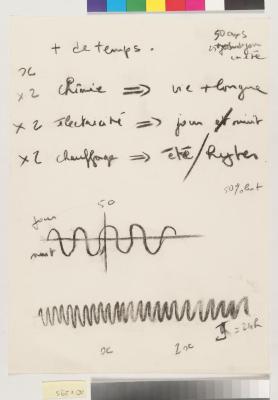 + de temps.
50
x
x 2 chimie ⇒ vie + longue
x 2 électricité ⇒ jour et nuit
x 2 chauffage ⇒ été / hyver
50%
50
jour
nuit
= 24h
x 2x